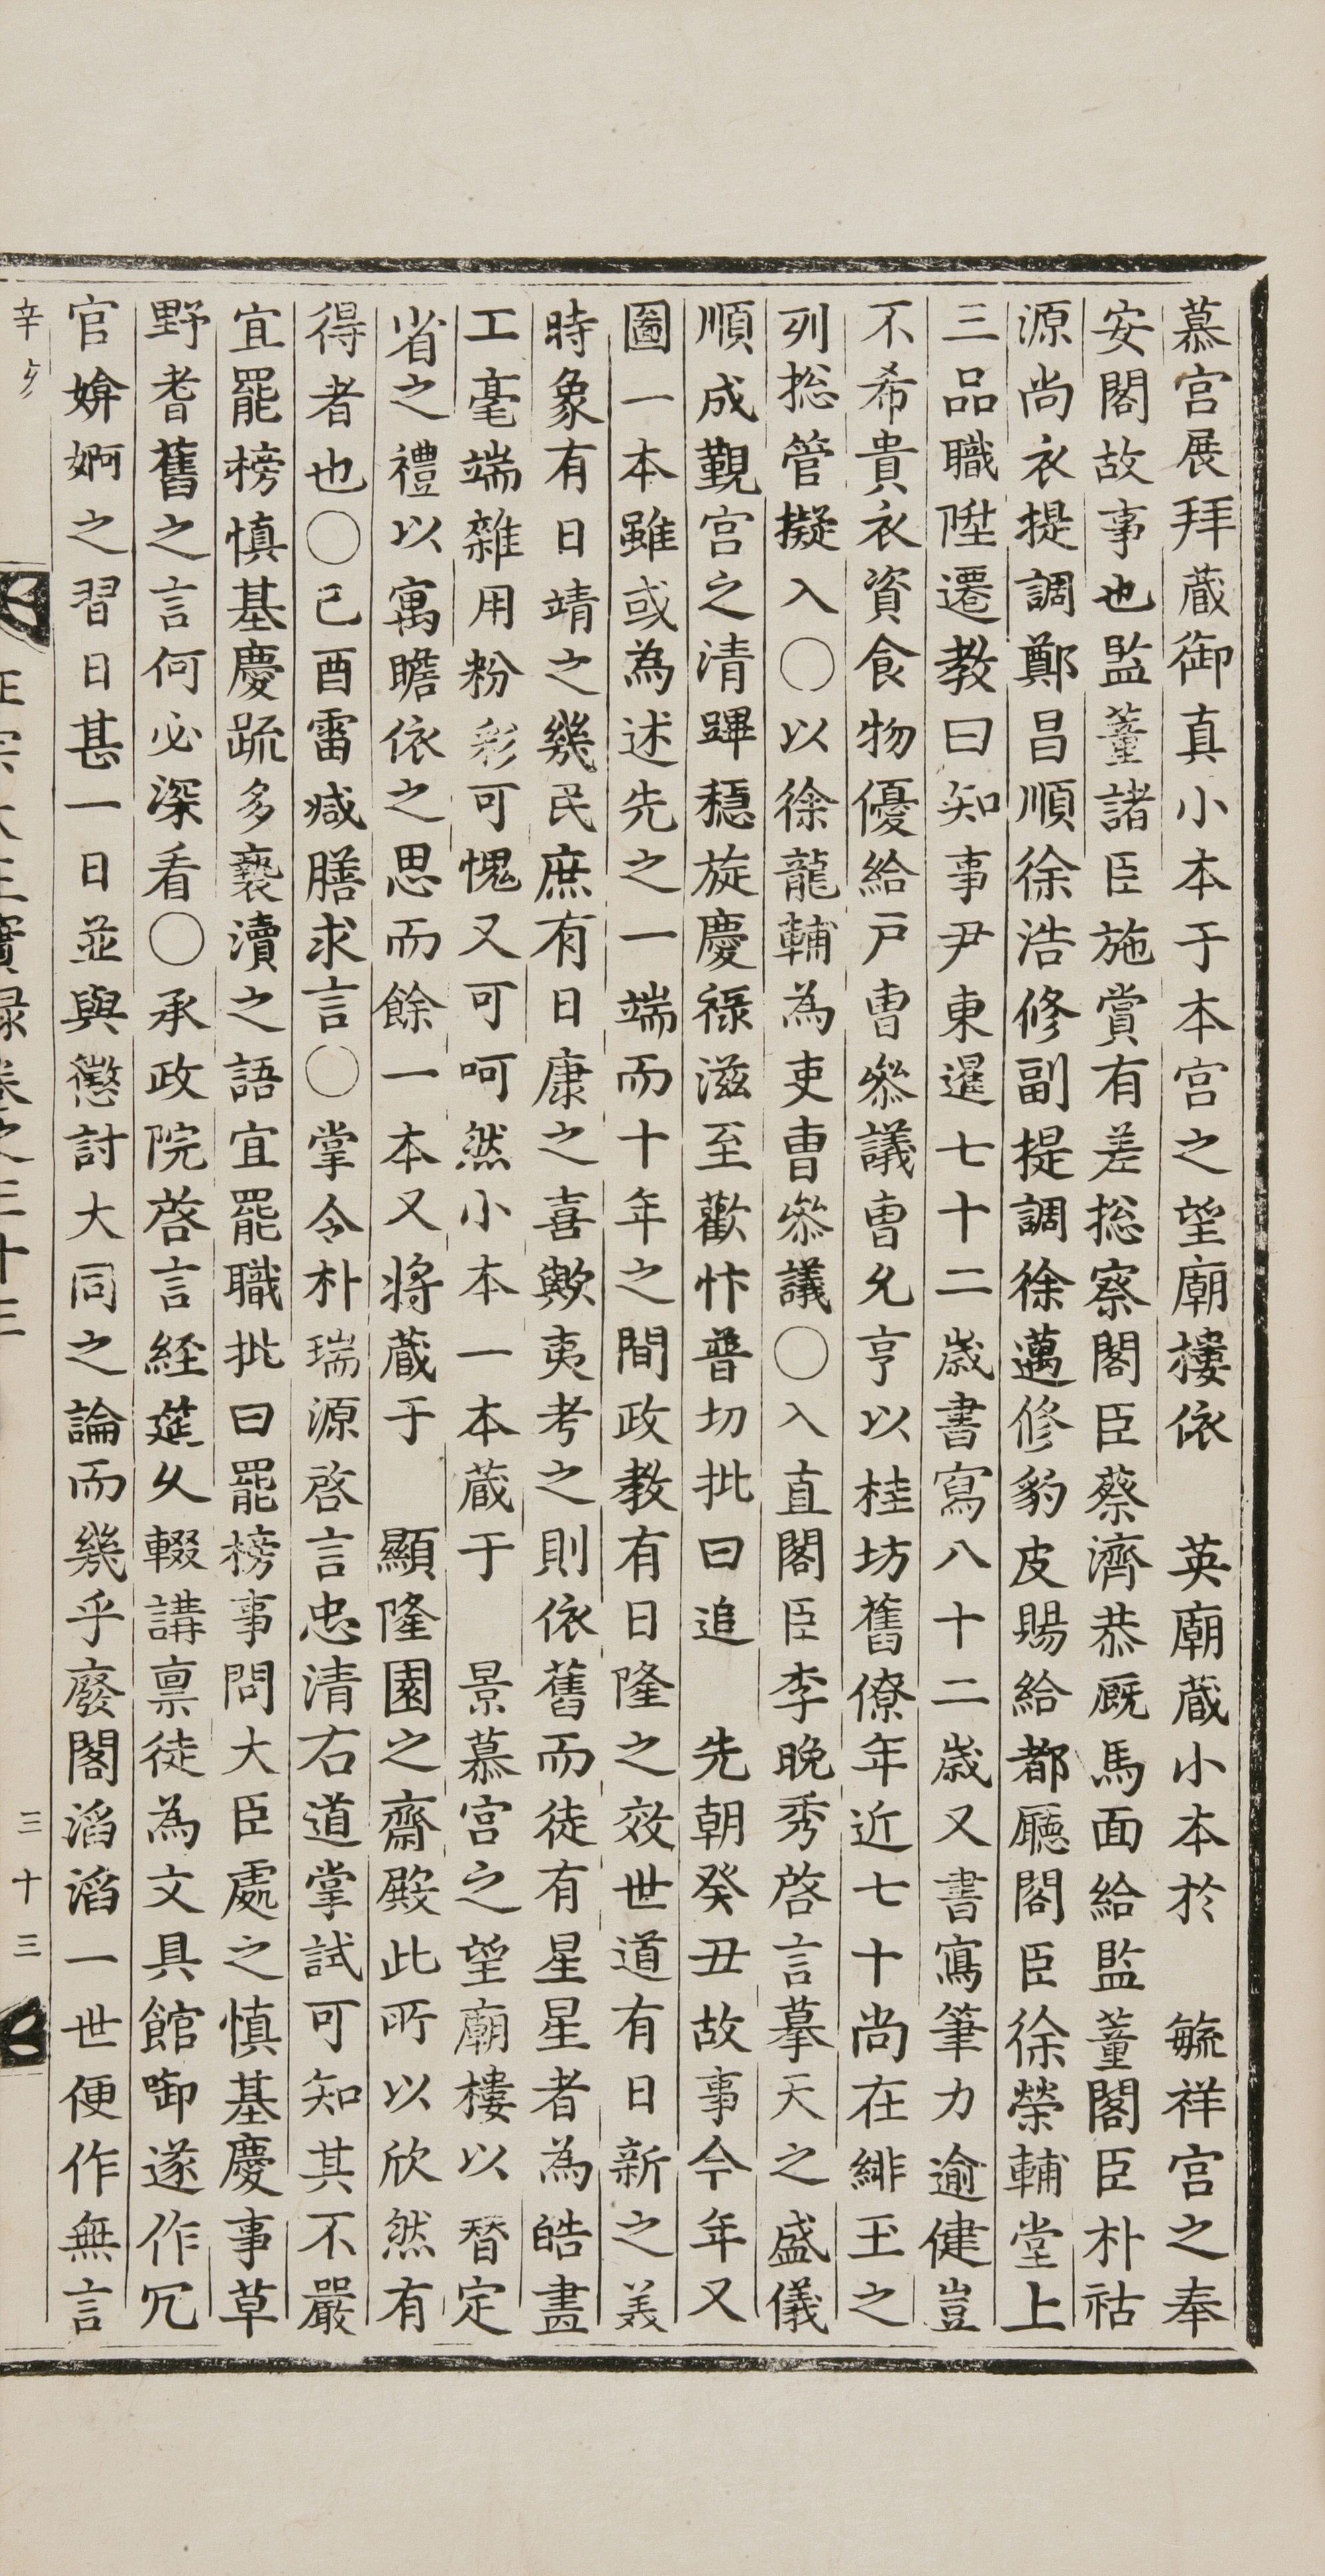 慕宮展拜蔵御真小本于本宮之望廟樓依　英廟蔵小本於　毓祥宮之奉
安閣故事也監董諸臣施賞有差総察閣臣蔡濟恭厩馬面給監董閣臣朴祜
源尚衣提調鄭昌順徐浩修副提調徐邁修豹皮賜給都廳閣臣徐榮輔堂上
三品職陞遷教曰知事尹東暹七十二歳書寫八十二歳又書寫筆力逾健豈
不希貴衣資食物優給戶曺叅議曺允亨以桂坊舊僚年近七十尚在緋玉之
列捴管擬入○以徐龍輔為吏曺叅議○入直閣臣李晚秀啓言摹天之盛儀
順成覲宮之清蹕穏旋慶禄滋至歡忭普切批曰追　先朝癸丑故事今年又
圖一本雖或為述先之一端而十年之間政教有日隆之效世道有日新之美
時象有日靖之幾民庶有日康之喜歟夷考之則依舊而徒有星星者為皓畫
工毫端雜用粉彩可愧又可呵然小本一本蔵于　景慕宮之望廟樓以替定
省之禮以寓瞻依之思而餘一本又將蔵于　顯隆園之齋殿此所以欣然有
得者也○己酉雷減膳求言○掌令朴瑞源啓言忠清右道掌試可知其不嚴
宜罷榜慎基慶疏多褻瀆之語宜罷職批曰罷榜事問大臣處之慎基慶事草
野耆舊之言何必深看○承政院啓言経筵久輟講禀徒為文具館啣遂作冗
官媕婀之習日甚一日並與懲討大同之論而幾乎廢閣滔滔一世便作無言
辛亥
正宗大王實録卷之三十三
三十三